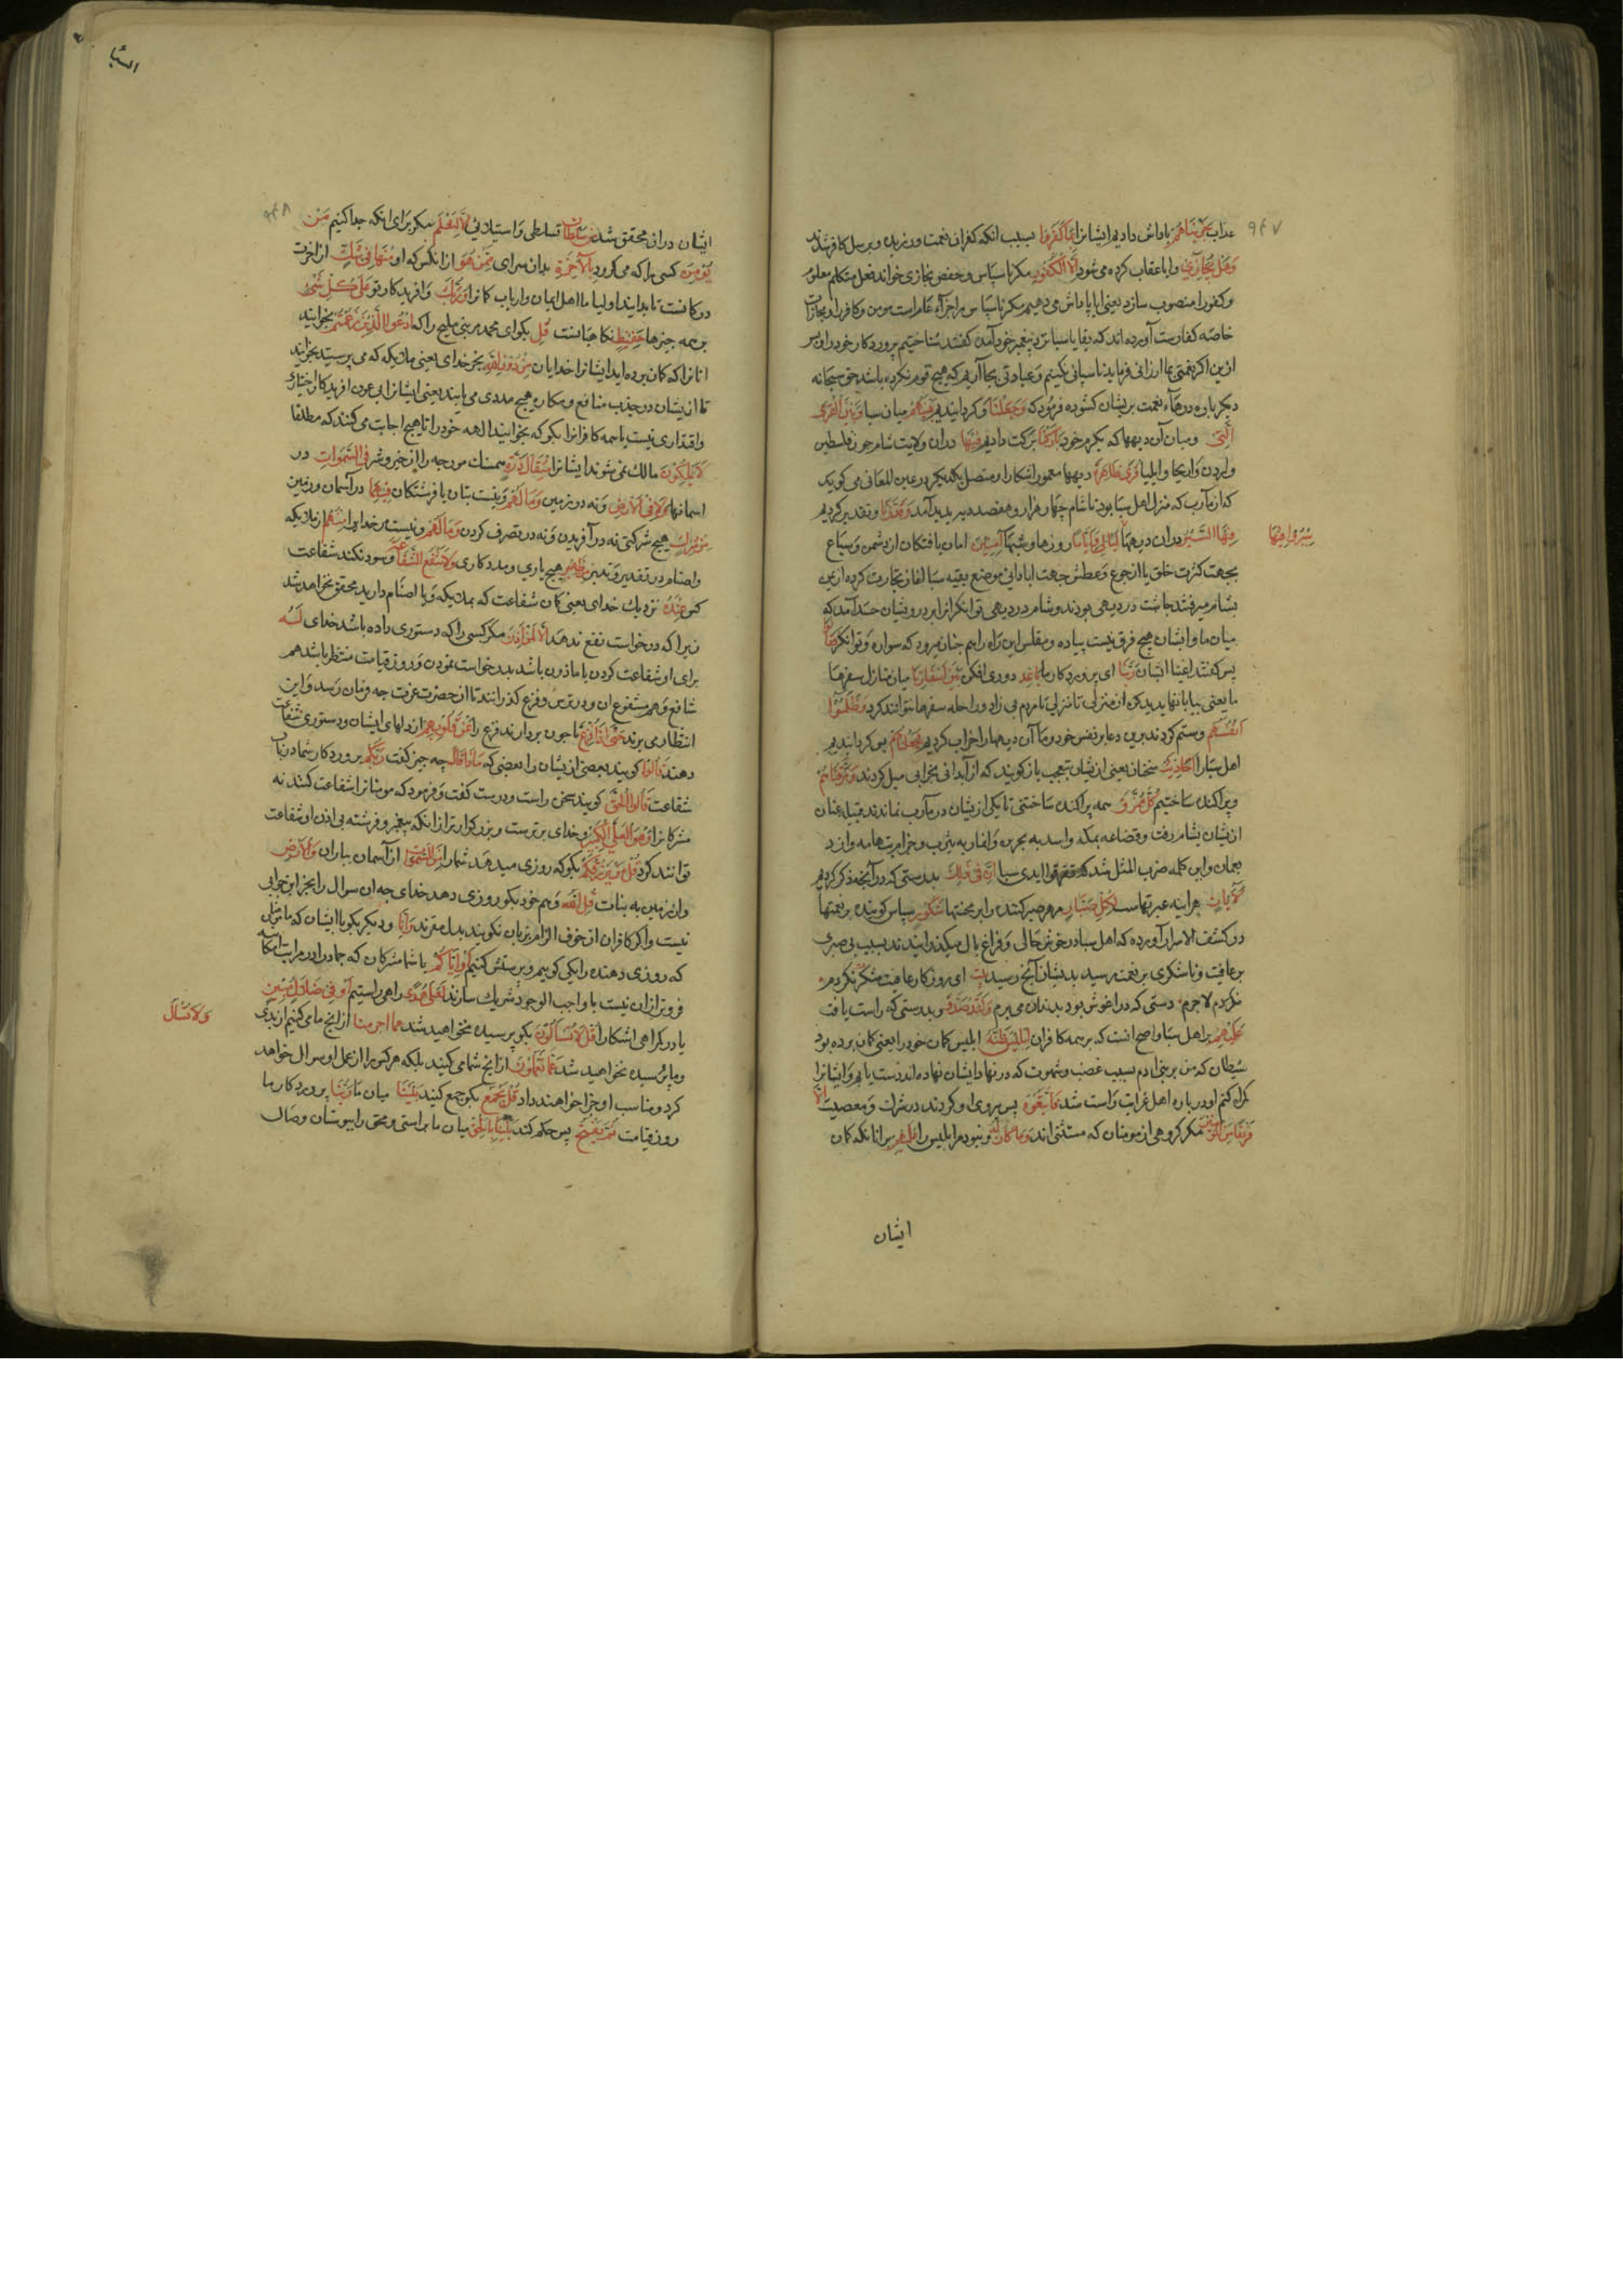 ۹۴۷
عذاب جَزَيْنَاهُمْ پاداش دادیم ایشانرا بِمَا كَفَرُوا بسبب انکه کفران نعمت ورزیدند وبرسل کافر شدند
وَهَلْ نُجَازِي وایا عقاب کرده می شود إِلَّا الْكَفُورَ مکر ناسپاس وحفص نجازی خواند فعل متکلم معلوم
وکفور را منصوب سازد یعنی ایا پاداش می دهیم مکر ناسپاس را جزاء عام است مومن وکافر را ومجازات
خاصه کفارست آورده اند که بقایا سبا نزد پیغمبر خود آمدند کفتند شناختیم پروردکار خود را وپس
ازین اکر نعمتی بما ارزانی فرماید ناسپاسی نکنیم وعبادتی بجا آریم که هیچ قوم نکرده باشد حق سبحانه
دیکر باره درهاء نعمت بریشان کشوده فرمود که وَجَعَلْنَا وکردانیدیم بَيْنَهُمْ میان سبا وَبَيْنَ الْقُرَى
الَّتِي ومیان آن دیهها که بکرم خود بَارَكْنَا برکت دادیم فِيهَا دران ولایت شام چون فلسطین
واردن واریحا وایلیا قُرًى ظَاهِرَةً دیهها معمور اشکارا ومتصل بیکدیکر در عین المعانی می کوید
که از مارب که منزل اهل سبا بود تا شام چهار هزار وهفصد دیه پدید آمد وَقَدَّرْنَا وتقدیر کردیم
فِيهَا السَّيْرَ دران دیهها لَيَالِيَ وَأَيَّامًا روزها وشبها آمِنِينَ امان یافتکان از دشمن وسباع
سِيرُوا فِيهَا
بجهت کثرت خلق یا از جوع وعطش جهت ابادانی موضع بقیه سبا اغاز تجارت کرده از یمن
بشام میرفتند چاشت در دیهی بودند وشام در دیهی توانکرانرا بر درویشان حسد آمد که
میان ما وایشان هیچ فرق نیست پیاده ومفلس این راه را هم چنان میرود که سواره وتوانکر فَقَالُوا
پس کفتند اغنیا ایشان رَبَّنَا ای پروردکار ما بَاعِدْ دوری افکن بَيْنَ أَسْفَارِنَا میان منازل سفرها
ما یعنی بیابانها پدید کن از منزلی تا منزلی تا مردم بی زاد وراحله سفرها نتوانند کرد وَظَلَمُوا
أَنْفُسَهُمْ وستم کردند برین دعا بر نفس خود وما آن دیهها را خراب کردیم فَجَعَلْنَاهُمْ پس کردانیدیم
اهل سبا را أَحَادِيثَ سخنان یعنی از یشان بتعجب باز کویند که از آبدانی بخرابی میل کردند وَمَزَّقْنَاهُمْ
وپراکنده ساختیم كُلَّ مُمَزَّقٍ همه پراکنده ساختنی تا یکی ازیشان در مارب نماندند قبیله غسان
ازیشان بشام رفت وقضاعه بمکه واسد به بحرین وانمار به یثرب وجذام بتهامه وازد
بعمان واین کلمه ضرب المثل شد که تفرقوا ایدی سبا إِنَّ فِي ذَلِكَ بدرستی که درآنچه ذکر کردیم
لَآيَاتٍ هراینه عبرتهاست لِكُلِّ صَبَّارٍ مرهر صبر کننده را بر محنتها شَكُورٍ سپاس کوینده بر نعمتها
در کشف الاسرار آورده که اهل سبا در خوش حالی وفراغ بال میکذرانیدند بسبب بی صبری
بر عافیت وناشکری بر نعمت رسید بدیشان آنچ رسید بیت ای روزکار عافیت شکرت نکردم
نکردم لاجرم دستی که در اغوش بود بدندان می برم وَلَقَدْ صَدَّقَ وبدرستی که راست یافت
عَلَيْهِمْ بر اهل سبا واصح انست که بر همه کافران إِبْلِيسُ ظَنَّهُ ابلیس کمان خود را یعنی کمان برده بود
شیطان که من بر بنی ادم بسبب غضب وشهوت که در نهاد ایشان نهاده اند دست یابم وایشانرا
کمراه کنم او درباره اهل غوایت راست شد فَاتَّبَعُوهُ پس پیروی او کردند در شرک ومعصیت إِلَّا
فَرِيقًا مِنَ الْمُؤْمِنِينَ مکر کروهی از مومنان که مستثنی اند وَمَا كَانَ لَهُ ونبود مر ابلیس را عَلَيْهِمْ بر انانکه کمان
ایشان
السبا
۹۴۸
ایشان دران محقق شد مِنْ سُلْطَانٍ تسلطی واستیلائی إِلَّا لِنَعْلَمَ مکر برای انکه جدا کنیم مَنْ
يُؤْمِنُ کسی را که می کرود بِالْآخِرَةِ بدان سرای مِمَّنْ هُوَ ازانکس که او مِنْهَا فِي شَكٍّ از اخرت
در کمانست تا بدانند اولیا ما اهل ایمان وارباب کمانرا وَرَبُّكَ وافریدکار تو عَلَى كُلِّ شَيْءٍ
بر همه چیزها حَفِيظٌ نکاهبانست قُلِ بکو ای محمد مر بنی ملیح را که ادْعُوا الَّذِينَ زَعَمْتُمْ بخوانید
انانرا که کمان برده اید ایشانرا خدایان مِنْ دُونِ اللَّهِ بجز خدای یعنی ملایکه که می پرستید بخوانید
تا ازیشان در جذب منافع ومکاره هیچ مددی می یابند یعنی ایشانرا بی عون افریدکار اختیار
واقتداری نیست یا همه کافرانرا بکو که بخوانید الهه خود را تا هیچ اجابت می کنند که مطلقا
لَا يَمْلِكُونَ مالک نمی شوند ایشانرا مِثْقَالَ ذَرَّةٍ همسنک مورچه را از خیر وشر فِي السَّمَوَاتِ در
اسمانها وَلَا فِي الْأَرْضِ ونه در زمین وَمَا لَهُمْ ونیست بتان یا فرشتکان فِيهِمَا در آسمان وزمین
مِنْ شِرْكٍ هیچ شرکتی نه در آفریدن ونه در تصرف کردن وَمَا لَهُ ونیست مر خدایرا مِنْهُمْ از ملایکه
واصنام در تقدیر وتدبیر مِنْ ظَهِيرٍ هیچ یاری ومددکاری وَلَا تَنْفَعُ الشَّفَاعَةُ وسود نکند شفاعت
کس عِنْدَهُ نزدیک خدای یعنی کمان شفاعت که بملایکه ویا اصنام دارید محقق نخواهد شد
زیرا که درخواست نفع ندهد إِلَّا لِمَنْ أَذِنَ مکر کسی را که دستوری داده باشد خدای لَهُ
برای او شفاعت کردن یا ماذون باشد بدرخواست نمودن وروز قیامت منتظر باشد هم
شافع وهم مشفوع ان ودر ترس وفزع کذرانند تا از حضرت عزت چه فرمان رسد واین
انتظار می برند حَتَّى إِذَا فُزِّعَ تا چون بردارند فزع را عَنْ قُلُوبِهِمْ از دلهای ایشان ودستوری شفاعت
دهند قَالُوا کویند بعضی ازیشان را بعضی که مَاذَا قَالَ چه چیز کفت رَبُّكُمْ پروردکار شما در باب
شفاعت قَالُوا الْحَقَّ کویند سخن راست ودرست کفت وفرمود که مومنانرا شفاعت کنند نه
مشرکانرا وَهُوَ الْعَلِيُّ الْكَبِيرُ وخدای برترست وبزرکوارتر ازانکه پیغمبر وفرشته بی اذن او شفاعت
توانند کرد قُلْ مَنْ يَرْزُقُكُمْ بکو که روزی میدهد شمارا مِنَ السَّمَوَاتِ از آسمان بباران وَالْأَرْضِ
واز زمین به نبات قُلِ اللَّهُ وهم خود بکو روزی دهد خدای چه ان سوال را بجز این جوابی
نیست واکر کافران از خوف الزام بزبان نکویند بدل مقرند وَإِنَّا ودیکر بکو با ایشان که ما
که روزی دهنده را یکی کوییم وپرستش کنیم أَوْ إِيَّاكُمْ یا شما مشرکان که جماد را در مراتب امکانیه
فروتر ازان نیست با واجب الوجود شریک سازند لَعَلَى هُدًى بر راهی راستیم أَوْ فِي ضَلَالٍ مُبِينٍ
یا در کمراهی اشکارا قُلْ لَا تُسْأَلُونَ بکو پرسیده نخواهید شد عَمَّا أَجْرَمْنَا از انچ ما می کنیم از بدی
وَلَا نُسْأَلُ
وما پرسیده نخواهیم شد عَمَّا تَعْمَلُونَ از انچ شما می کنید بلکه هر کس را از عمل او سوال خواهند
کرد ومناسب او جزا خواهند داد قُلْ يَجْمَعُ بکو جمع کند بَيْنَنَا میان ما رَبُّنَا پروردکار ما
روز قیامت ثُمَّ يَفْتَحُ پس حکم کند بَيْنَنَا بِالْحَقِّ میان ما براستی ومحق را ببوستان وصال